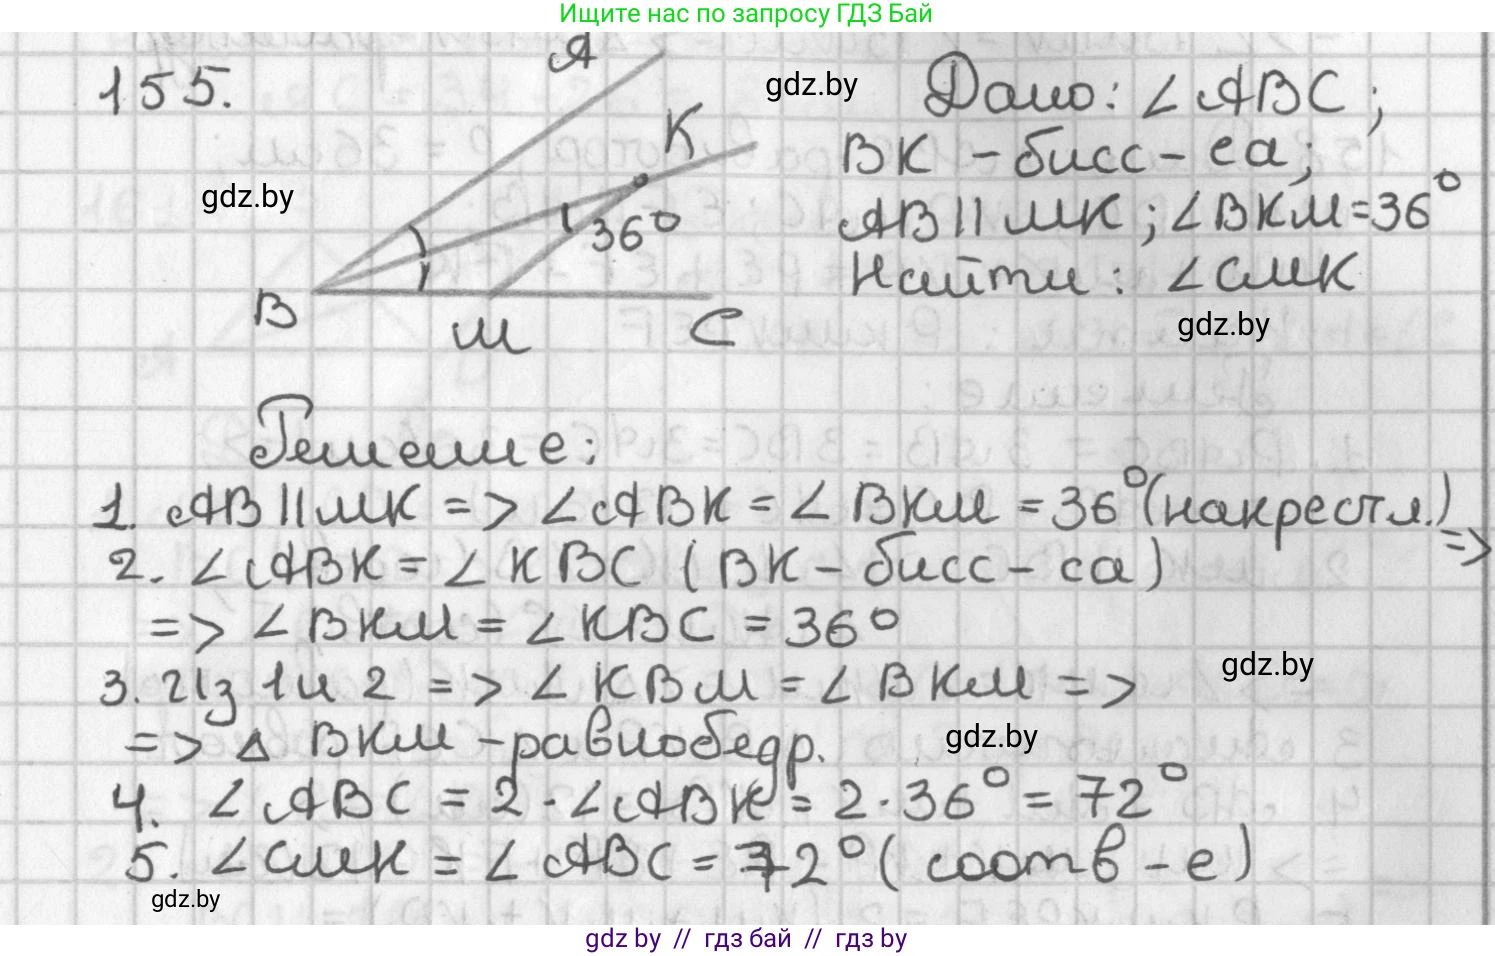 Ищите нас по запросу ГДЗ Бай
155.
A
K
36°
B
M
C
gdz.by
gdz.by
Дано: ∠ABC;
BK - бисс-са;
AB || MK; ∠BKM = 36°
Найти: ∠CMK
gdz.by
Решение:
1. AB || MK => ∠ABK = ∠BKM = 36° (накрестл.) =>
2. ∠ABK = ∠KBC (BK - бисс-са)
=> ∠BKM = ∠KBC = 36°
3. Из 1 и 2 => ∠KBM = ∠BKM =>
gdz.by
=> △ BKM - равнобедр.
gdz.by
4. ∠ABC = 2·∠ABK = 2·36° = 72°
5. ∠CMK = ∠ABC = 72° (соотв-е)
gdz.by
gdz by // гдз бай // гдз by